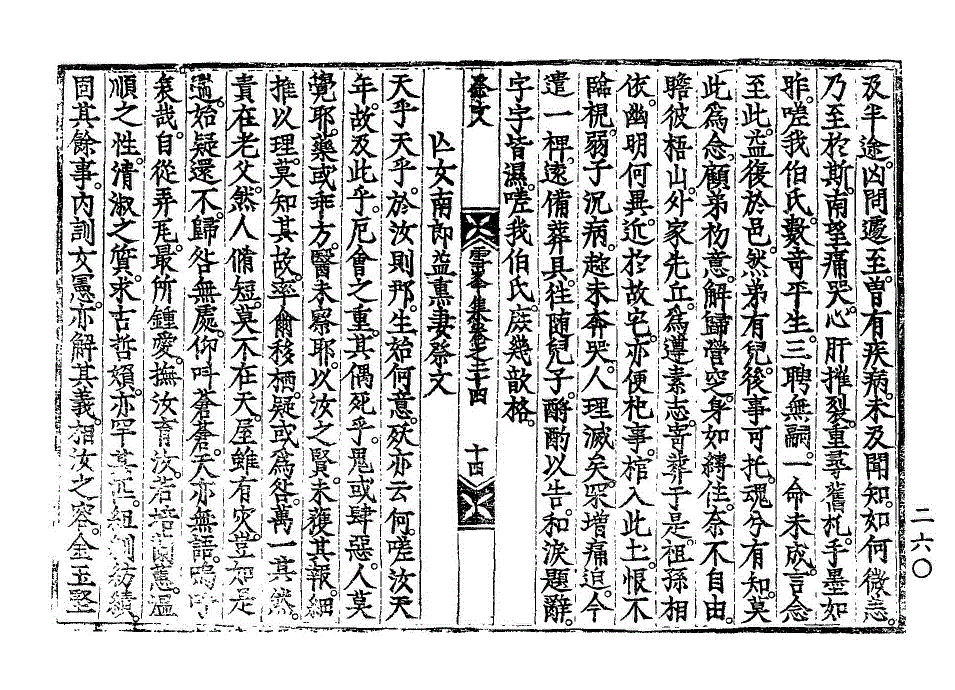 及半途。凶問遽至。曾有疾病。未及聞知。如何微恙。
乃至於斯。南望痛哭。心肝摧裂。重尋舊札。手墨如
昨。嗟我伯氏。數奇平生。三聘無嗣。一命未成。言念
至此。益復於邑。然弟有兒。後事可托。魂兮有知。莫
此爲念。顧弟初意。解歸營窆。身如縛住。奈不自由。
瞻彼梧山。外家先丘。爲遵素志。寄葬于是。祖孫相
依。幽明何異。近於故宅。亦便杝事。棺入此土。恨不
臨視。弱子沉病。趁未奔哭。人理滅矣。罙增痛迫。今
遣一稗。遠備葬具。往随兒子。酹酌以告。和淚題辭。
字字皆濕。嗟我伯氏。庶幾歆格。
祭文
雪峯集卷之二十四
十四
亡女南郎益熏妻祭文
天乎天乎。於汝則那。生始何意。殀亦云何。嗟汝天
年。故及此乎。厄會之重。其偶死乎。鬼或肆惡。人莫
覺耶。藥或乖方。醫未察耶。以汝之賢。未獲其報。細
推以理。莫知其故。率爾移栖。疑或爲咎。萬一其然。
責在老父。然人脩短。莫不在天。屋雖有灾。豈如是
始疑還不。歸咎無處。仰呌蒼蒼。天亦無語。嗚呼
哀哉。自從弄瓦。最所鍾愛。撫汝育汝。若培蘭蕙。温
順之性。清淑之質。求古哲媛。亦罕其匹。組紃紡績。
固其餘事。內訓女憲。亦解其義。相汝之容。金玉堅
二六〇